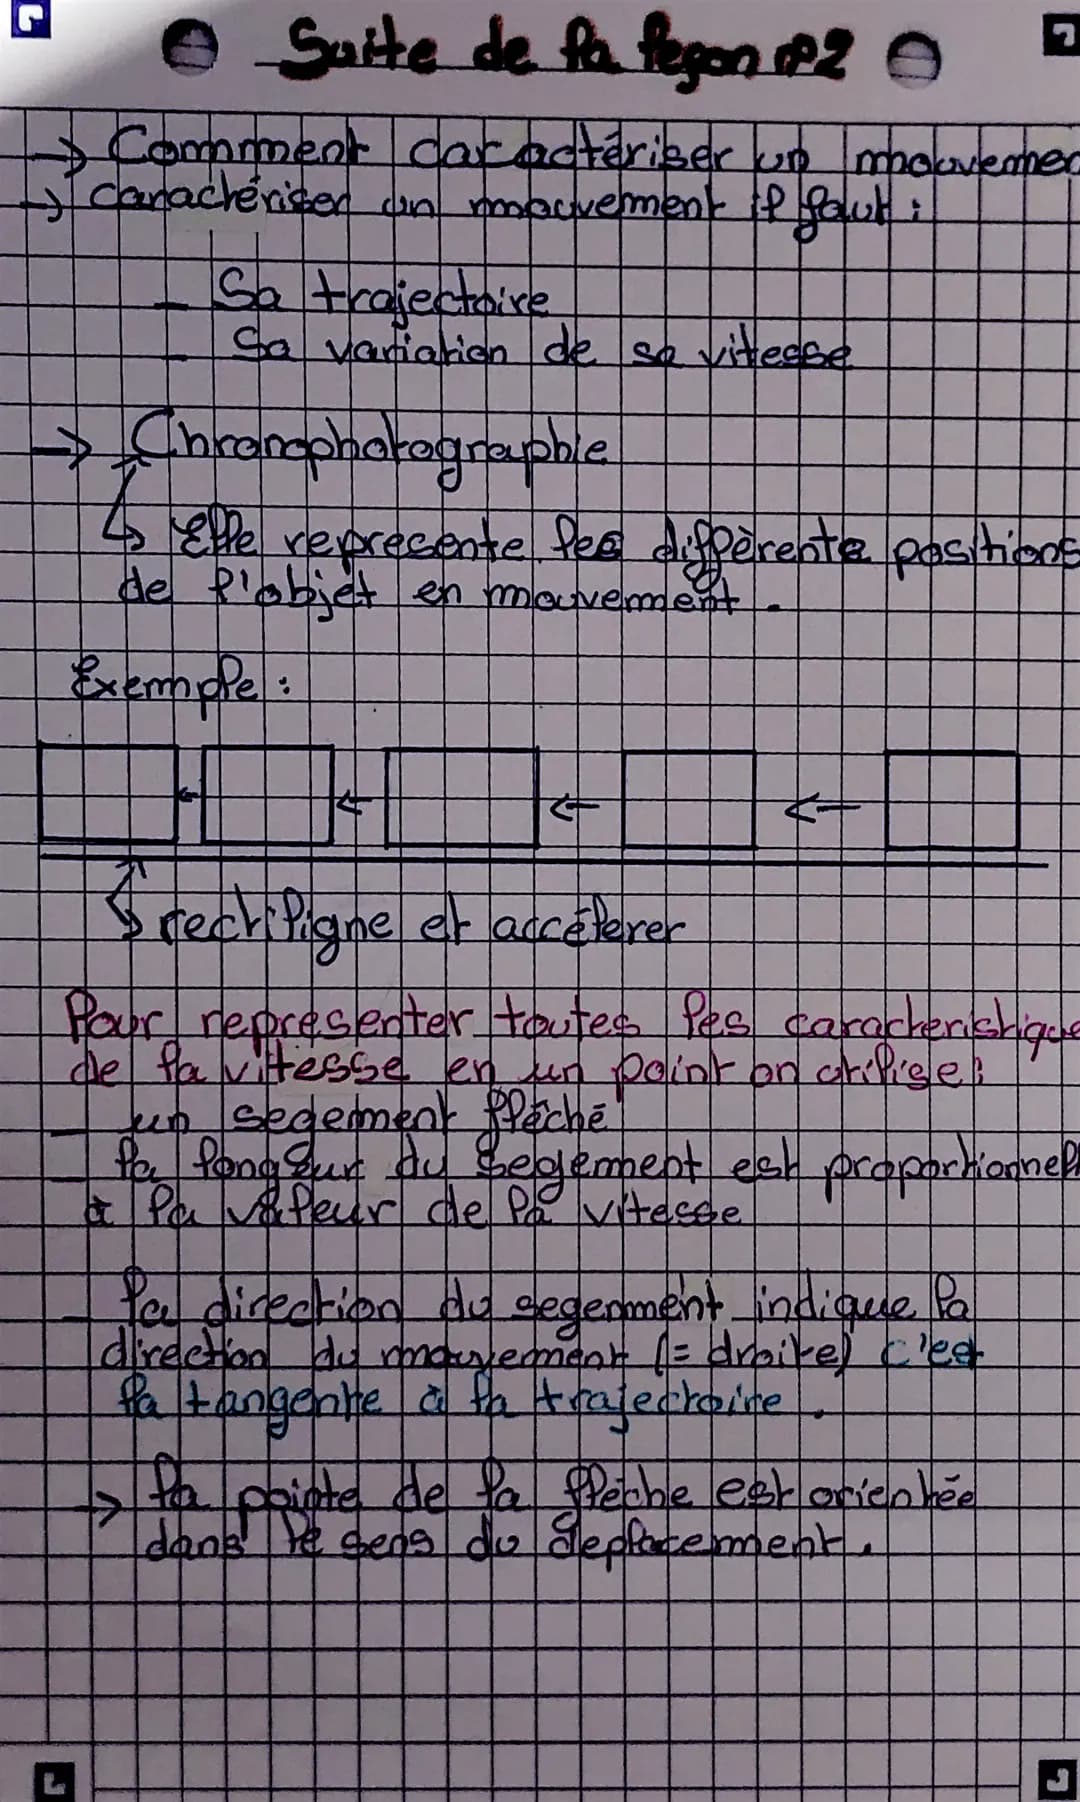 Suite de la leçon n°2
→ Commment caractériser un mouvemen
→ caractériser un mouvement il faut :
- Sa trajectoire
- Sa variation de sa vitesse
→ Chronophotographie
↳ Elle represente les différente positions
de l'objet en mouvement.
Exemple :
↳ rectiligne et accélerer
Pour representer toutes les caracteristique
de la vitesse en un point on utilise :
- un segement fléché
- la longueur du segement est proportionnel
à la valeur de la vitesse
- la direction du segement indique la
direction du mouvement (= droite) c'est
la tangente à la trajectoire.
→ la pointe de la flèche est orientée
dans le sens du deplacement.